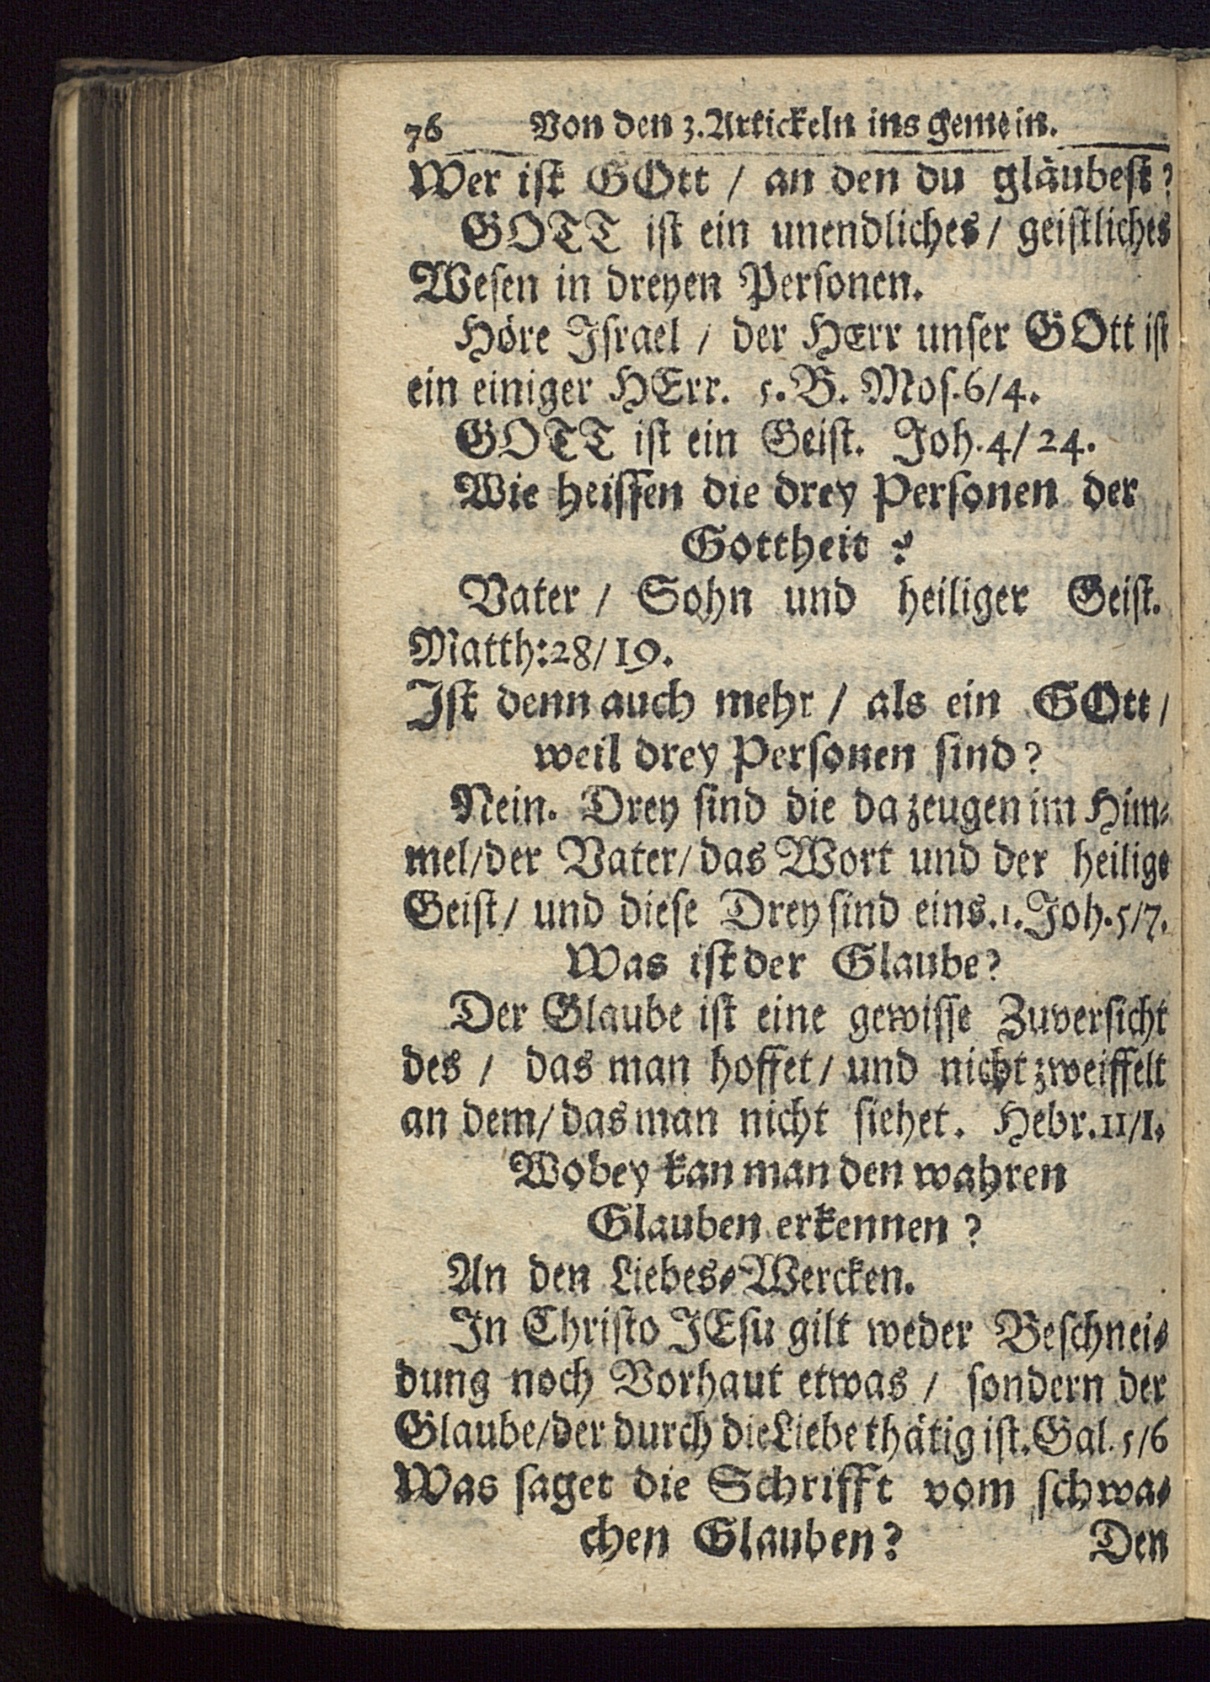 76 Von den 3. Artickeln ins gemein.
Wer iſt GOtt / an den du gläubeſt?
GOTT iſt ein unendliches / geiſtliches
Weſen in dreyen Perſonen.
Höre Iſrael / der HErr unſer GOtt iſt
ein einiger HErr. 5. B. Moſ. 6/4.
GOTT iſt ein Geiſt. Joh. 4/24.
Wie heiſſen die drey Perſonen der
Gottheit?
Vater / Sohn und heiliger Geiſt.
Matth: 28/19.
Iſt denn auch mehr / als ein GOtt /
weil drey Perſonen ſind?
Nein. Drey ſind die da zeugen im Him⸗
mel/der Vater/das Wort und der heilige
Geiſt/ und dieſe Drey ſind eins. 1. Joh. 5/7.
Was iſt der Glaube?
Der Glaube iſt eine gewiſſe Zuverſicht
des / das man hoffet/ und nicht zweiffelt
an dem/das man nicht ſiehet. Hebr. 11/1.
Wobey kan man den wahren
Glauben erkennen?
An den Liebes⸗Wercken.
In Chriſto JEſu gilt weder Beſchnei⸗
dung noch Vorhaut etwas / ſondern der
Glaube/der durch die Liebe thätig iſt. Gal. 5/6
Was ſaget die Schrifft vom ſchwa⸗
chen Glauben? Den